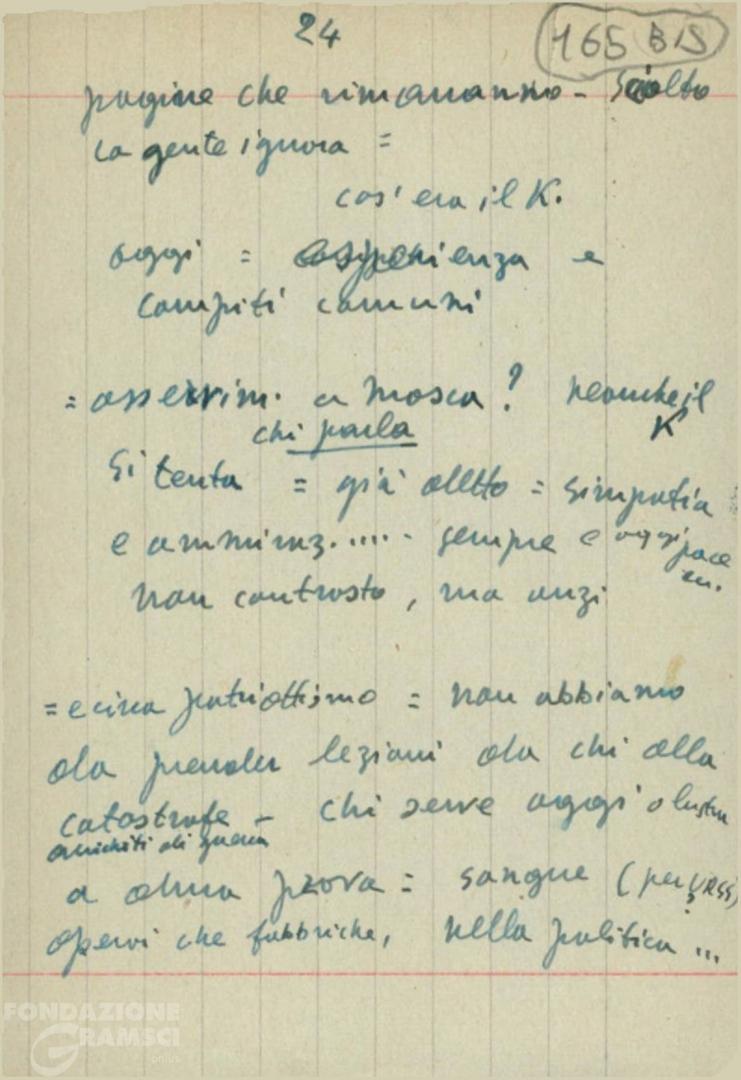 24
165 BIS
pagine che rimarranno - Sciolto
la gente ignora =
cos' era il K.
oggi = esperienza e
compiti comuni
= asservim. a Mosca? neanche il
K
chi parla
Si tenta = già detto = simpatia
e ammiraz..... sempre e oggi pace
non contrasto, ma anzi
= e circa patriottismo = non abbiamo
da prender lezioni da chi alla
catastrofe - chi serve oggi
arricchiti di guerra
a dura prova = sangue (per URSS)
operai che fabbriche, nella politica ...
FONDAZIONE
GRAMSCI
onlus